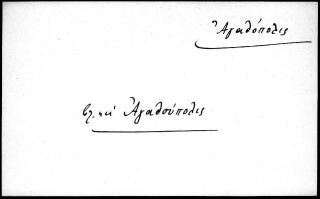 Ἀγαθόπολις
βλ. καὶ Ἀγαθούπολις